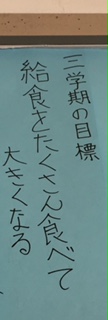 三学期の目標
給食をたくさん食べて
大きくなる